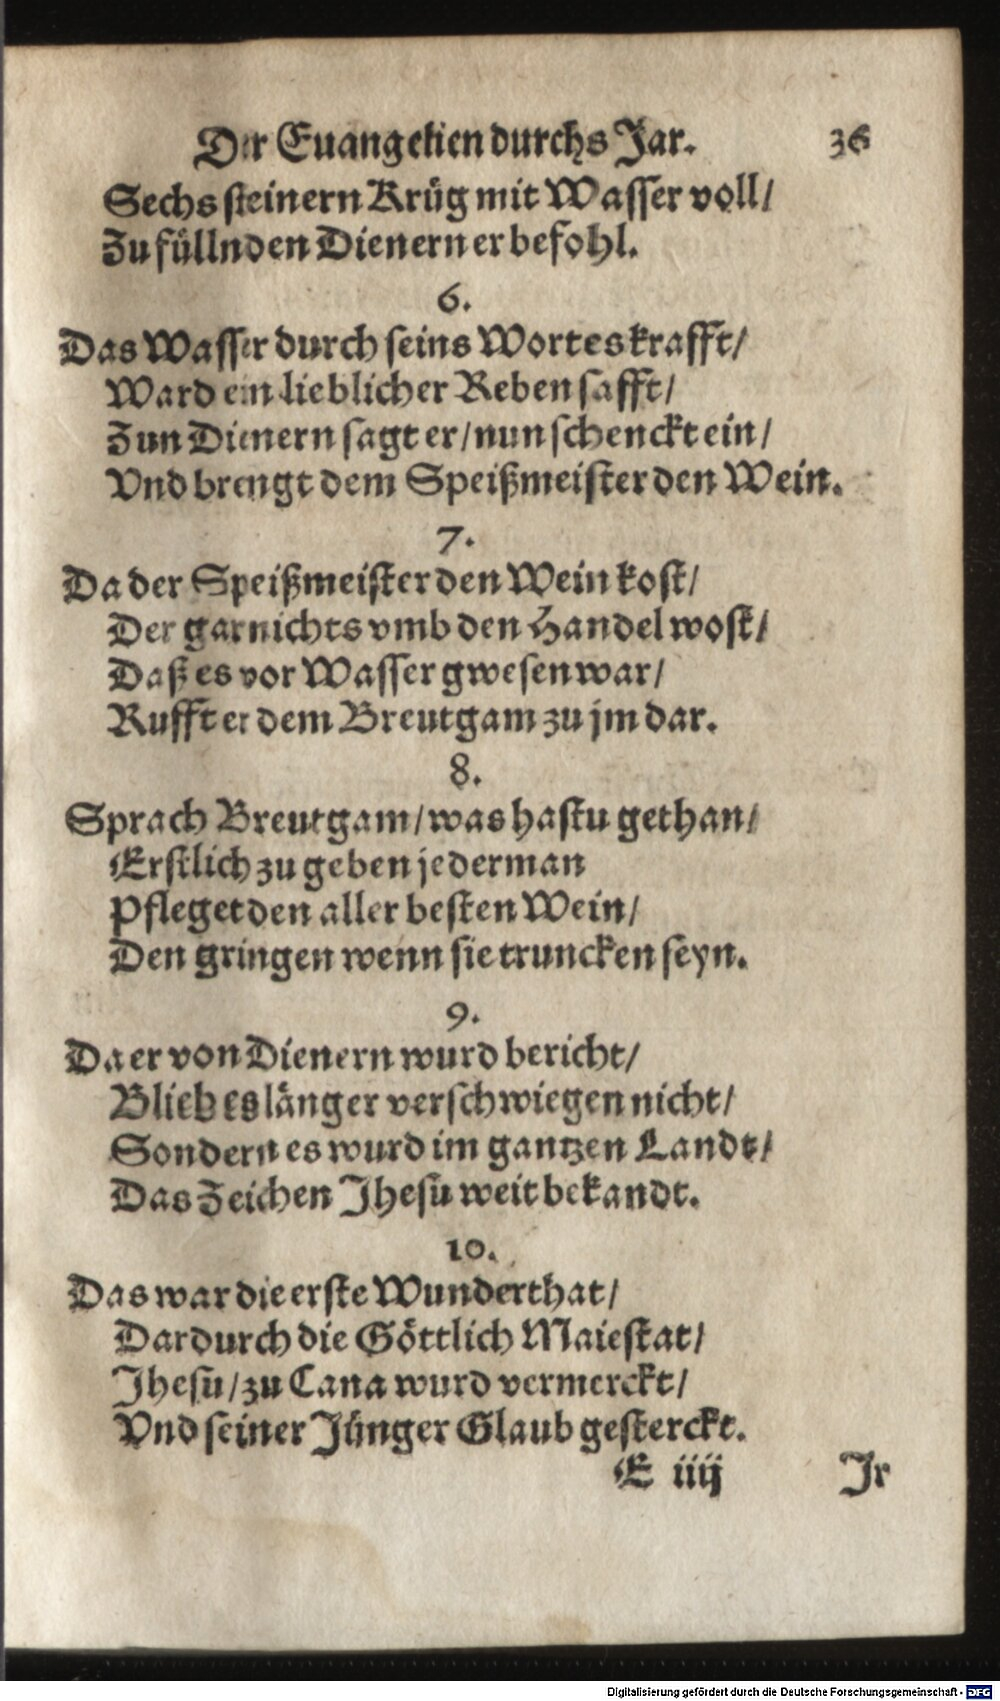 Der Euangelien durchs Jar. 36
Sechs steinern Krüg mit Wasser voll/
Zu fülln den Dienern er befohl.
6.
Das Wasser durch seins Wortes krafft/
Ward ein lieblicher Reben safft/
Zun Dienern sagt er/ nun schenckt ein/
Vnd brengt dem Speißmeister den Wein.
7.
Da der Speißmeister den Wein kost/
Der gar nichts vmb den Handel wost/
Daß es vor Wasser gwesen war/
Rufft er dem Breutgam zu jm dar.
8.
Sprach Breutgam/ was hastu gethan/
Erstlich zu geben jederman
Pfleget den aller besten Wein/
Den gringen wenn sie truncken seyn.
9.
Da er von Dienern wurd bericht/
Blieb es länger verschwiegen nicht/
Sondern es wurd im gantzen Landt/
Das Zeichen Jhesu weit bekandt.
10.
Das war die erste Wunderthat/
Dardurch die Göttlich Maiestat/
Jhesu/ zu Cana wurd vermerckt/
Vnd seiner Jünger Glaub gesterckt.
E iiij Jr
Digitalisierung gefördert durch die Deutsche Forschungsgemeinschaft - DFG